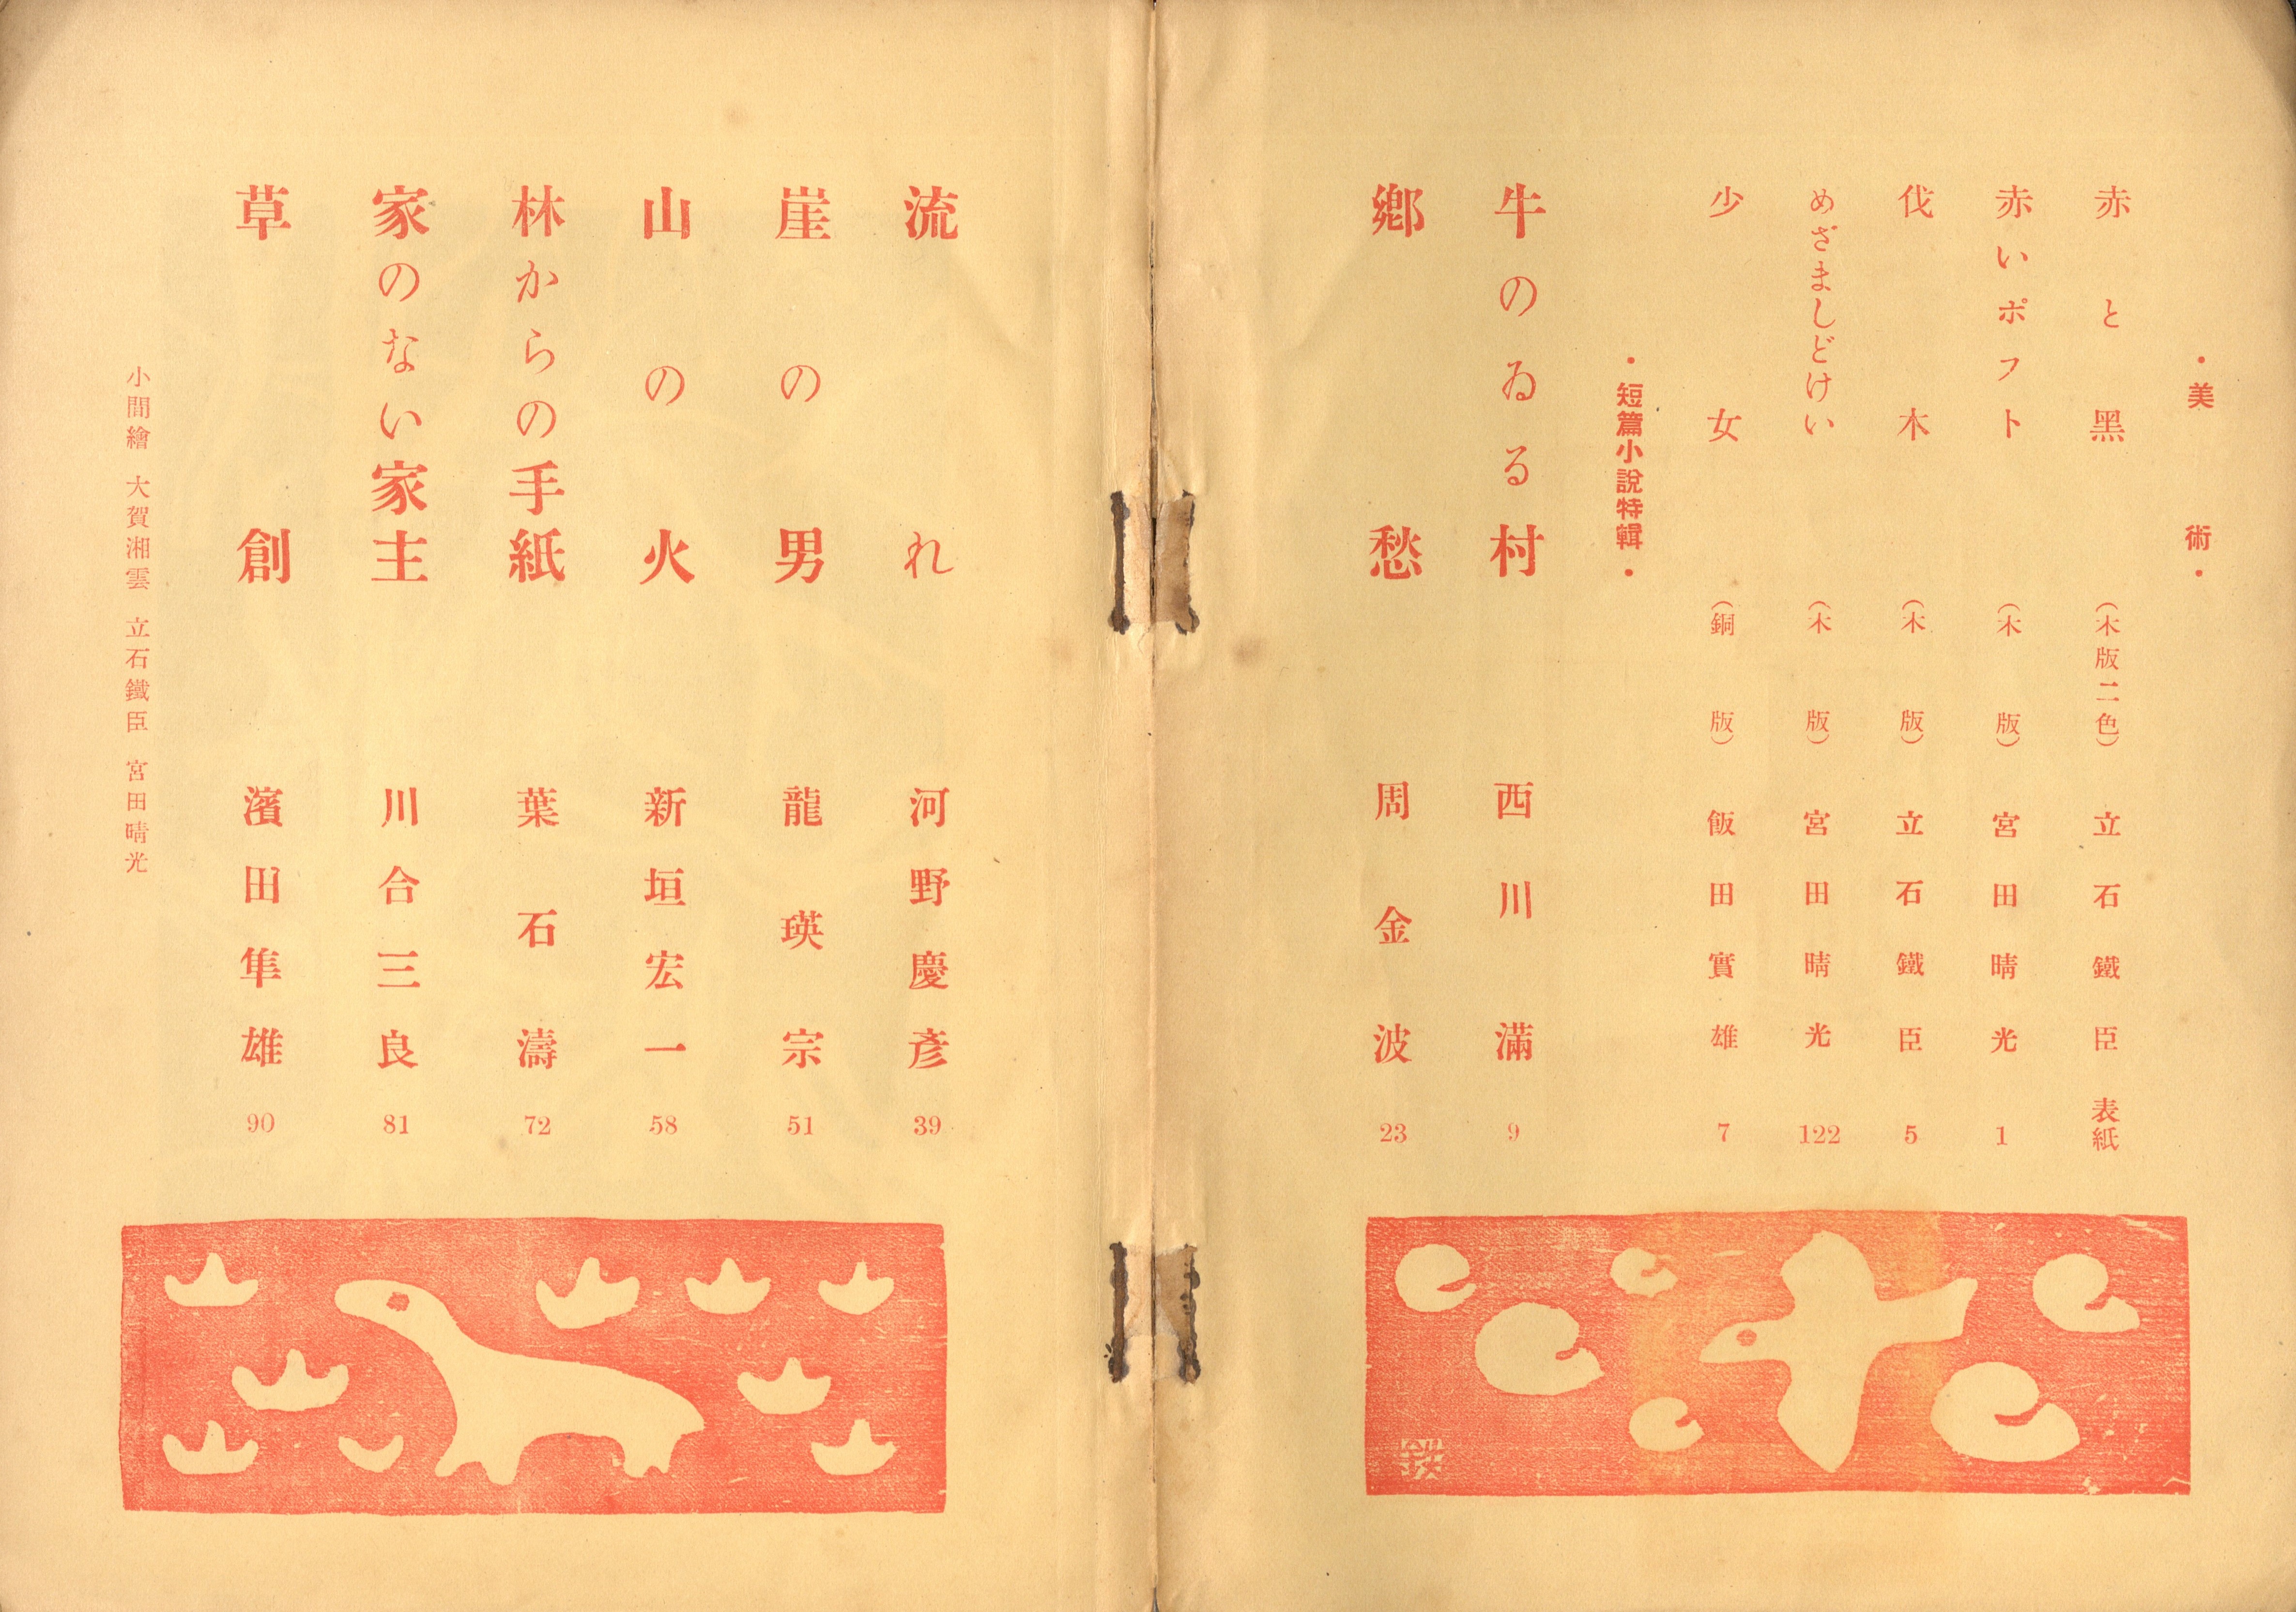 ・美術・
赤と黑 (木版二色) 立石鐵臣 表紙
赤いポフト (木版) 宮田晴光 1
伐木 (木版) 立石鐵臣 5
めざましどけい (木版) 宮田晴光 122
少女 (銅版) 飯田實雄 7
・短篇小說特輯・
牛のゐる村 西川滿 9
鄕愁 周金波 23
流れ 河野慶彥 39
崖の男 龍瑛宗 51
山の火 新垣宏一 58
林からの手紙 葉石濤 72
家のない家主 川合三良 81
草創 濱田隼雄 90
小間繪 大賀湘雲 立石鐵臣 宮田晴光
鉄